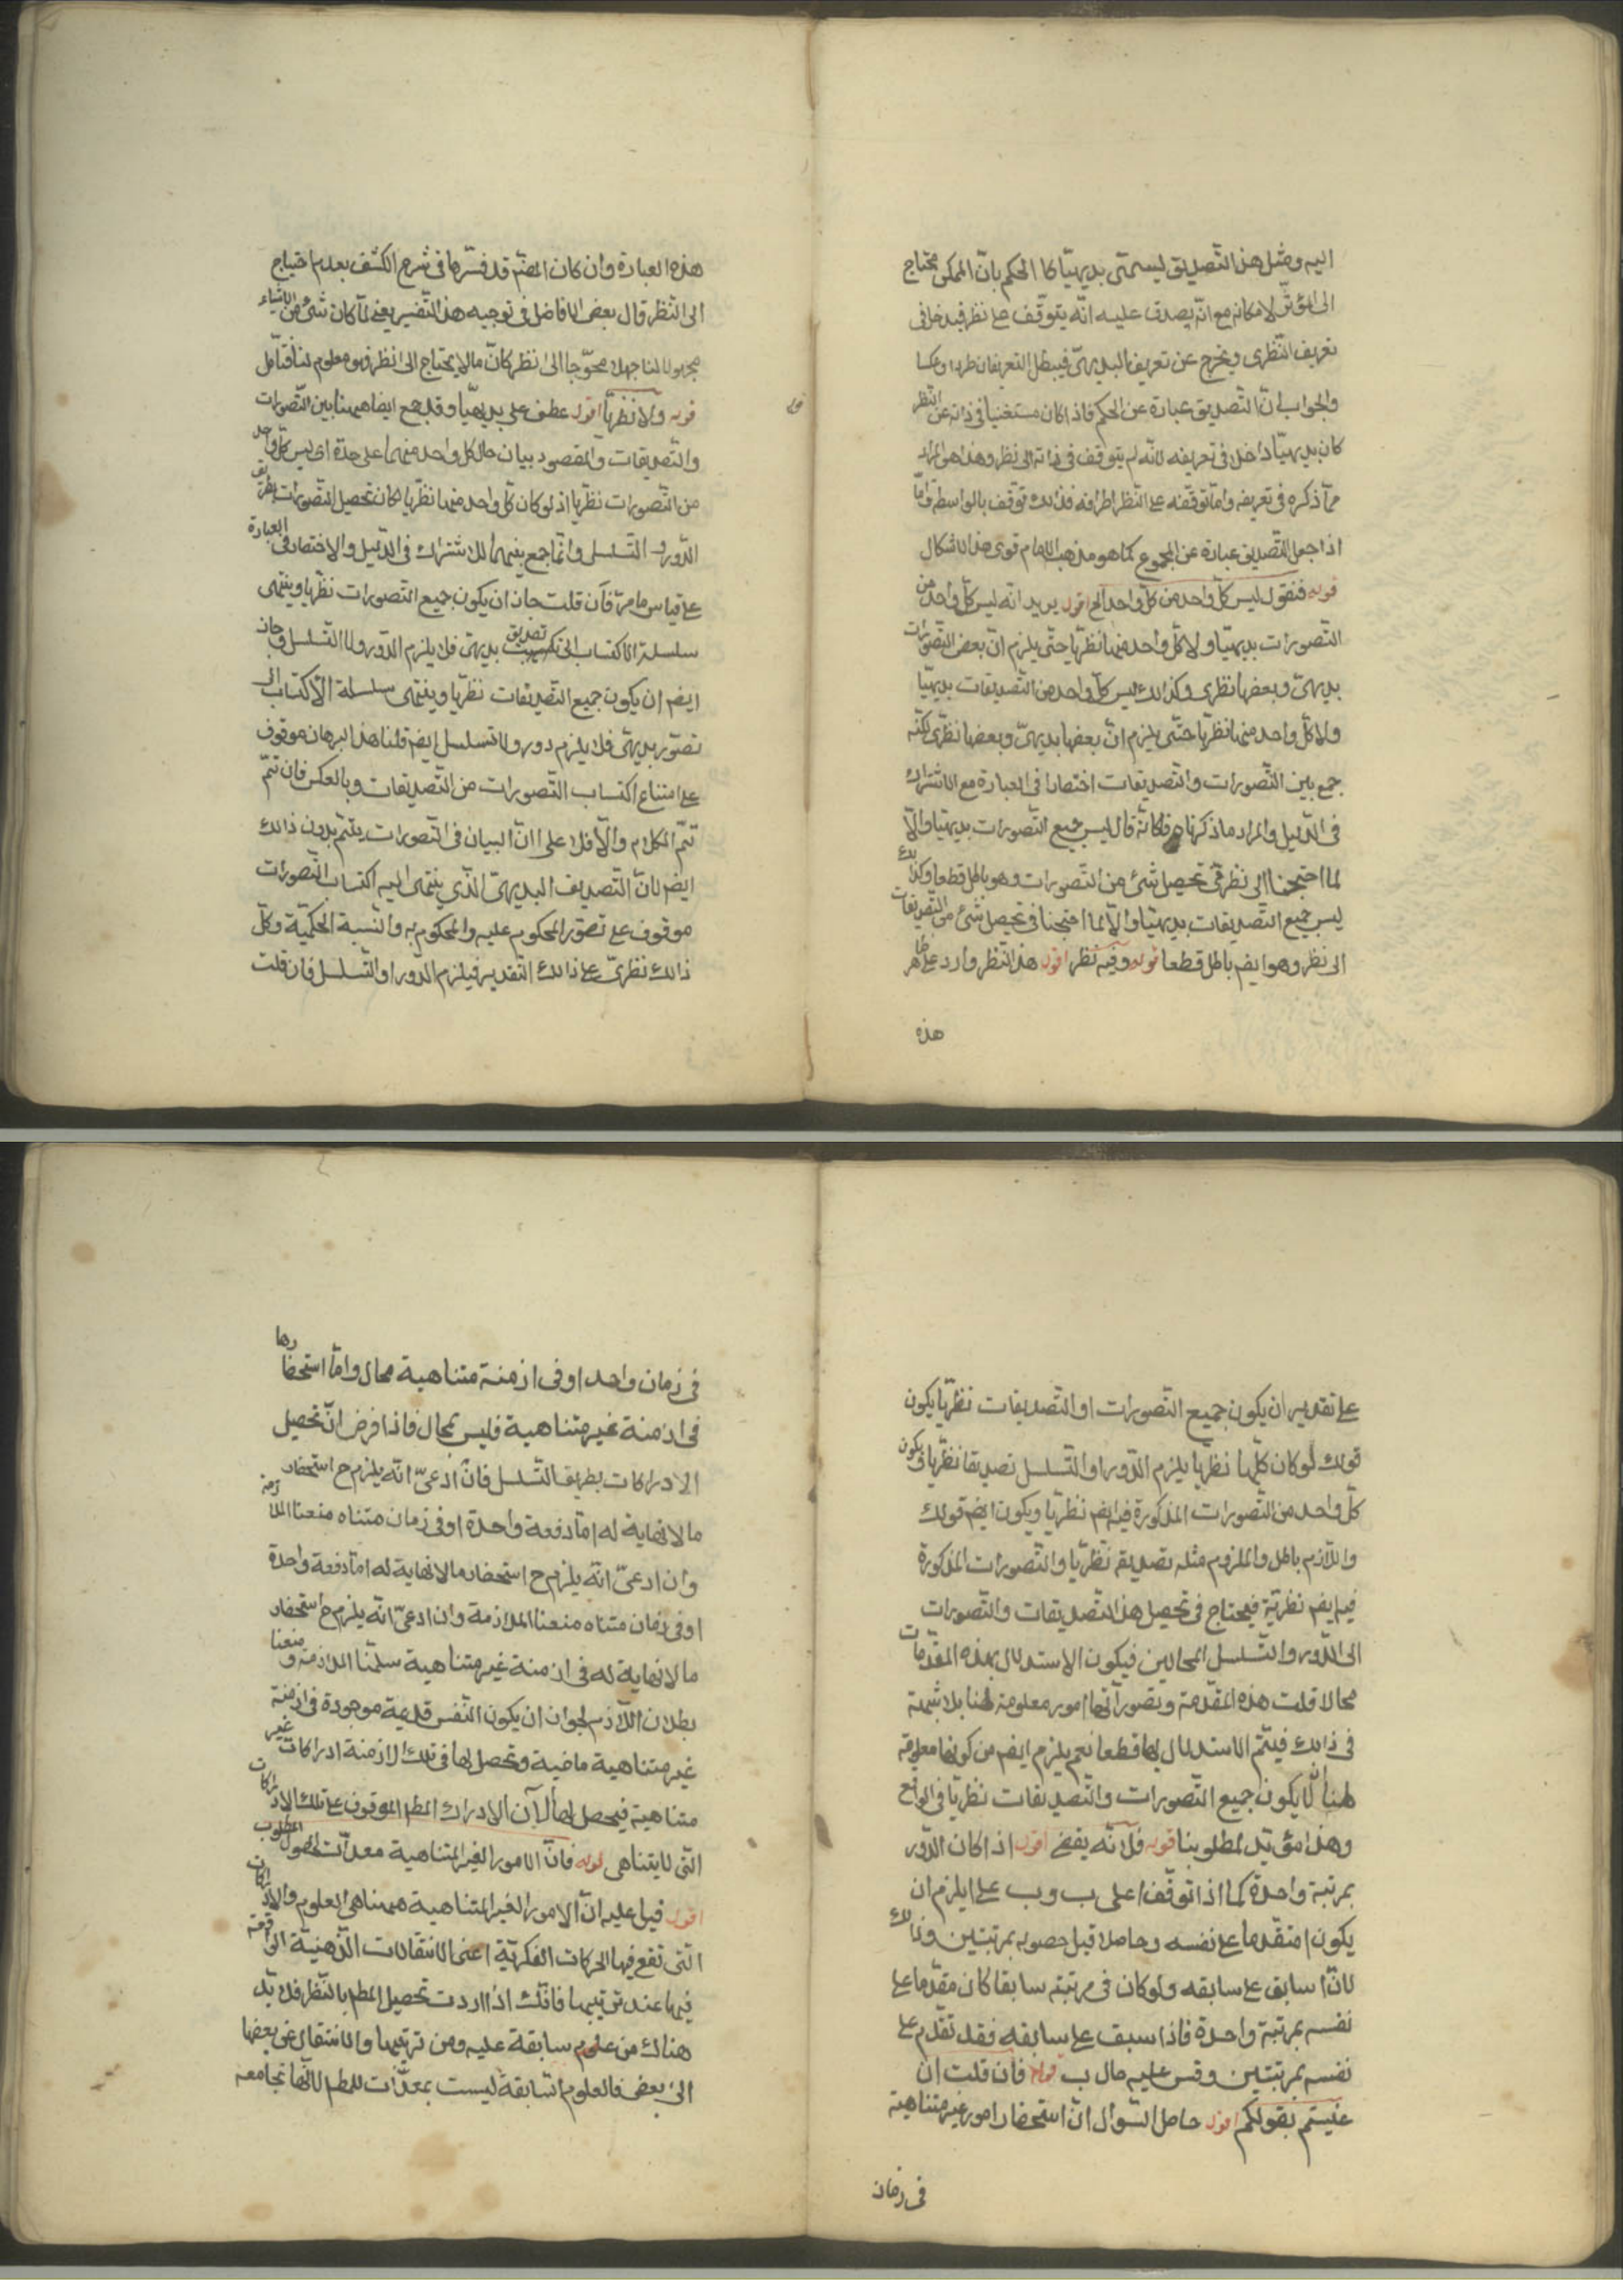 اليه ومثل هذا التصديق ليسمى بديهيّا كالحكم بانّ الممكن محتاج
الى المؤثّر لامكانه مع انّه يصدق عليه انّه يتوقّف على نظر فيدخل فى
تعريف النّظرى ويخرج عن تعريف البديهىّ فيبطل التعريفان طردا وعكسا
والجواب انّ التّصديق عبارة عن الحكم فاذا كان مستغنيا فى ذاته عن النّظر
كان بديهيّا داخلا فى تعريفه لانّه لم يتوقف فى ذاته الى نظر وهذا هو المراد
ممّا ذكره فى تعريفه وامّا توقّفه على النّظر اطرافه فذلك توقّف بالواسطة وامّا
اذا جعل التّصديق عبارة عن المجموع كما هو مذهب الامام قوى هذا الاشكال
قوله فنقول ليس كلّ واحد من كلّ واحد الخ اقول يريد انّه ليس كلّ واحد من
التّصورات بديهيّا ولا كلّ واحد منها نظريّا حتّى يلزم انّ بعض التّصورات
بديهىّ وبعضها نظرى وكذالك ليس كلّ واحد من التّصديقات بديهيّا
ولا كلّ واحد منها نظريّا حتّى يلزم انّ بعضها بديهىّ وبعضها نظرىّ لكنّه
جمع بين التّصورات والتصديقات اختصارا فى العبارة مع الاشتراك
فى الدّليل والمراد ما ذكرناه فكانّه قال ليس جميع التّصورات بديهيّا والّا
لما احتجنا الى نظر فى تحصيل شئ من التصورات وهو باطل قطعا وكذلك
ليس جميع التصديقات بديهيّا والّا لما احتجنا فى تحصيل شئ من التّصديقات
الى نظر وهو ايضم باطل قطعا قوله وفيه نظر اقول هذا النّظر وارد على ظاهر
هذه
هذه العبارة وان كان المصنّم قد فسّرها فى شرح الكشف بعدم احتياج
الى النّظر قال بعض الافاضل فى توجيه هذا التّفسير يعنى لمّا كان شئ من الاشياء
مجهولا لنا جهلا محوّجا الى نظر كانّ ما لا يحتاج الى نظر فهو معلوم لنا فتأمّل
قوله ولا نظريّا اقول عطف على بديهيّا وقد جمع ايضا هيهنا بين التّصورات
والتّصديقات والمقصود بيان حال كل واحد منهما على حدة اى ليس كلّ واحد
من التّصورات نظريّا اذ لو كان كلّ واحد منها نظريّا لكان تحصيل التّصورات بطريق
الدّور والتّسلسل وانّما جمع بينهما للاشتراك فى الدّليل والاختصار فى العبارة
على قياس ما مرّ فأن قلت جاز ان يكون جميع التصورات نظريّا وينتهى
سلسلة الاكتساب الى تصديق بديهىّ فلا يلزم الدّور ولا التّسلسل وجاز
ايضم ان يكون جميع التّصديقات نظريّا وينتهى سلسلة الأكتساب الى
تصوّر بديهىّ فلا يلزم دور ولا تسلسل ايضم قلنا هذا البرهان موقوف
على امتناع اكتساب التّصورات من التّصديقات وبالعكس فان تمّ
تمّ الكلام والّا فلا على انّ البيان فى التّصورات يتمّ بدون ذالك
ايضم لانّ التّصديق البديهىّ الّذى ينتهى اليه اكتساب التّصورات
موقوف على تصوّر المحكوم عليه والمحكوم به والنّسبة الحكميّة وكلّ
ذالك نظرىّ على ذالك التّقدير فيلزم الدّور او التّسلسل فان قلت
على تقدير ان يكون جميع التّصورات او التّصديقات نظريّا يكون
قولك لو كان كلّها نظريّا يلزم الدّور او التّسلسل تصديقا نظريّا ويكون
كلّ واحد من التّصورات المذكورة فيه ايضم نظريّا ويكون ايضم قولك
واللّازم باطل والملزوم مثله تصديقه نظريّا والتّصورات المذكورة
فيه ايضم نظريّة فيحتاج فى تحصيل هذا التّصديقات والتّصورات
الى الدّور والتّسلسل المحالين فيكون الاستدلال بهذه المقدّمات
محالا قلت هذه المقدّمة وتصوراتها امور معلومة لهنا بلا شبهة
فى ذالك فيتّم الاستدلال بها قطعا نعم يلزم ايضم من كونها معلومة
لهنا ان لا يكون جميع التّصورات والتّصديقات نظريّا فى الواقع
وهذا مؤيّد لمطلوبنا قوله فلانّه يفضى اقول اذا كان الدّور
بمرتبة واحدة كما اذا توقّف ا على ب وب على ا يلزم ان
يكون ا متقدّما على نفسه وحاصلا قبل حصوله بمرتبتين وذالك
لانّ ا سابق على سابقه ولو كان فى مرتبته سابقا كان مقدّما على
نفسه بمرتبة واحدة فاذا سبق على سابقه فقد تقدّم على
نفسه بمرتبتين وقس عليه حال ب قوله فأن قلت ان
عنيتم بقولكم اقول حاصل السّوال انّ استحضار امور غير متناهية
فى زمان
فى زمان واحد او فى ازمنة متناهية محال وامّا استحضارها
فى ازمنة غير متناهية فليس بمحال فاذا فرض انّ تحصيل
الادراكات بطريق التّسلسل فان ادعىّ انّه يلزم ح استحضار
ما لا نهاية له امّا دفعة واحدة او فى زمان متناه منعنا الملازمة
وان ادعىّ انّه يلزم ح استحضار ما لا نهاية له امّا دفعة واحدة
او فى زمان متناه منعنا الملازمة وان ادعىّ انّه يلزم ح استحضار
ما لا نهاية له فى ازمنة غير متناهية سلّمنا الملازمة ومنعنا
بطلان اللّازم لجواز ان يكون النّفس قديمة موجودة فى ازمنة
غير متناهية ماضية وتحصل لها فى تلك الازمنة ادراكات غير
متناهية فيحصل لها الآن الادراك المطم الموقوف على تلك الادراكات
التى لا يتناهى قوله فانّ الامور الغير المتناهية معدّات لحصول المطلوب
اقول قيل عليه انّ الامور الغير المتناهية هيهنا هى العلوم والادراكات
التى تقع فيها الحركات الفكريّة اعنى الانتقالات الذّهنيّة الواقعة
فيها عند ترتيبها فانّك اذا اردت تحصيل المطم بالنّظر فلا بدّ
هناك من علوم سابقة عليه ومن ترتيبها والانتقال عن بعضها
الى بعض فالعلوم السّابقة ليست بمعدّات للمطم لانّها تجامعه